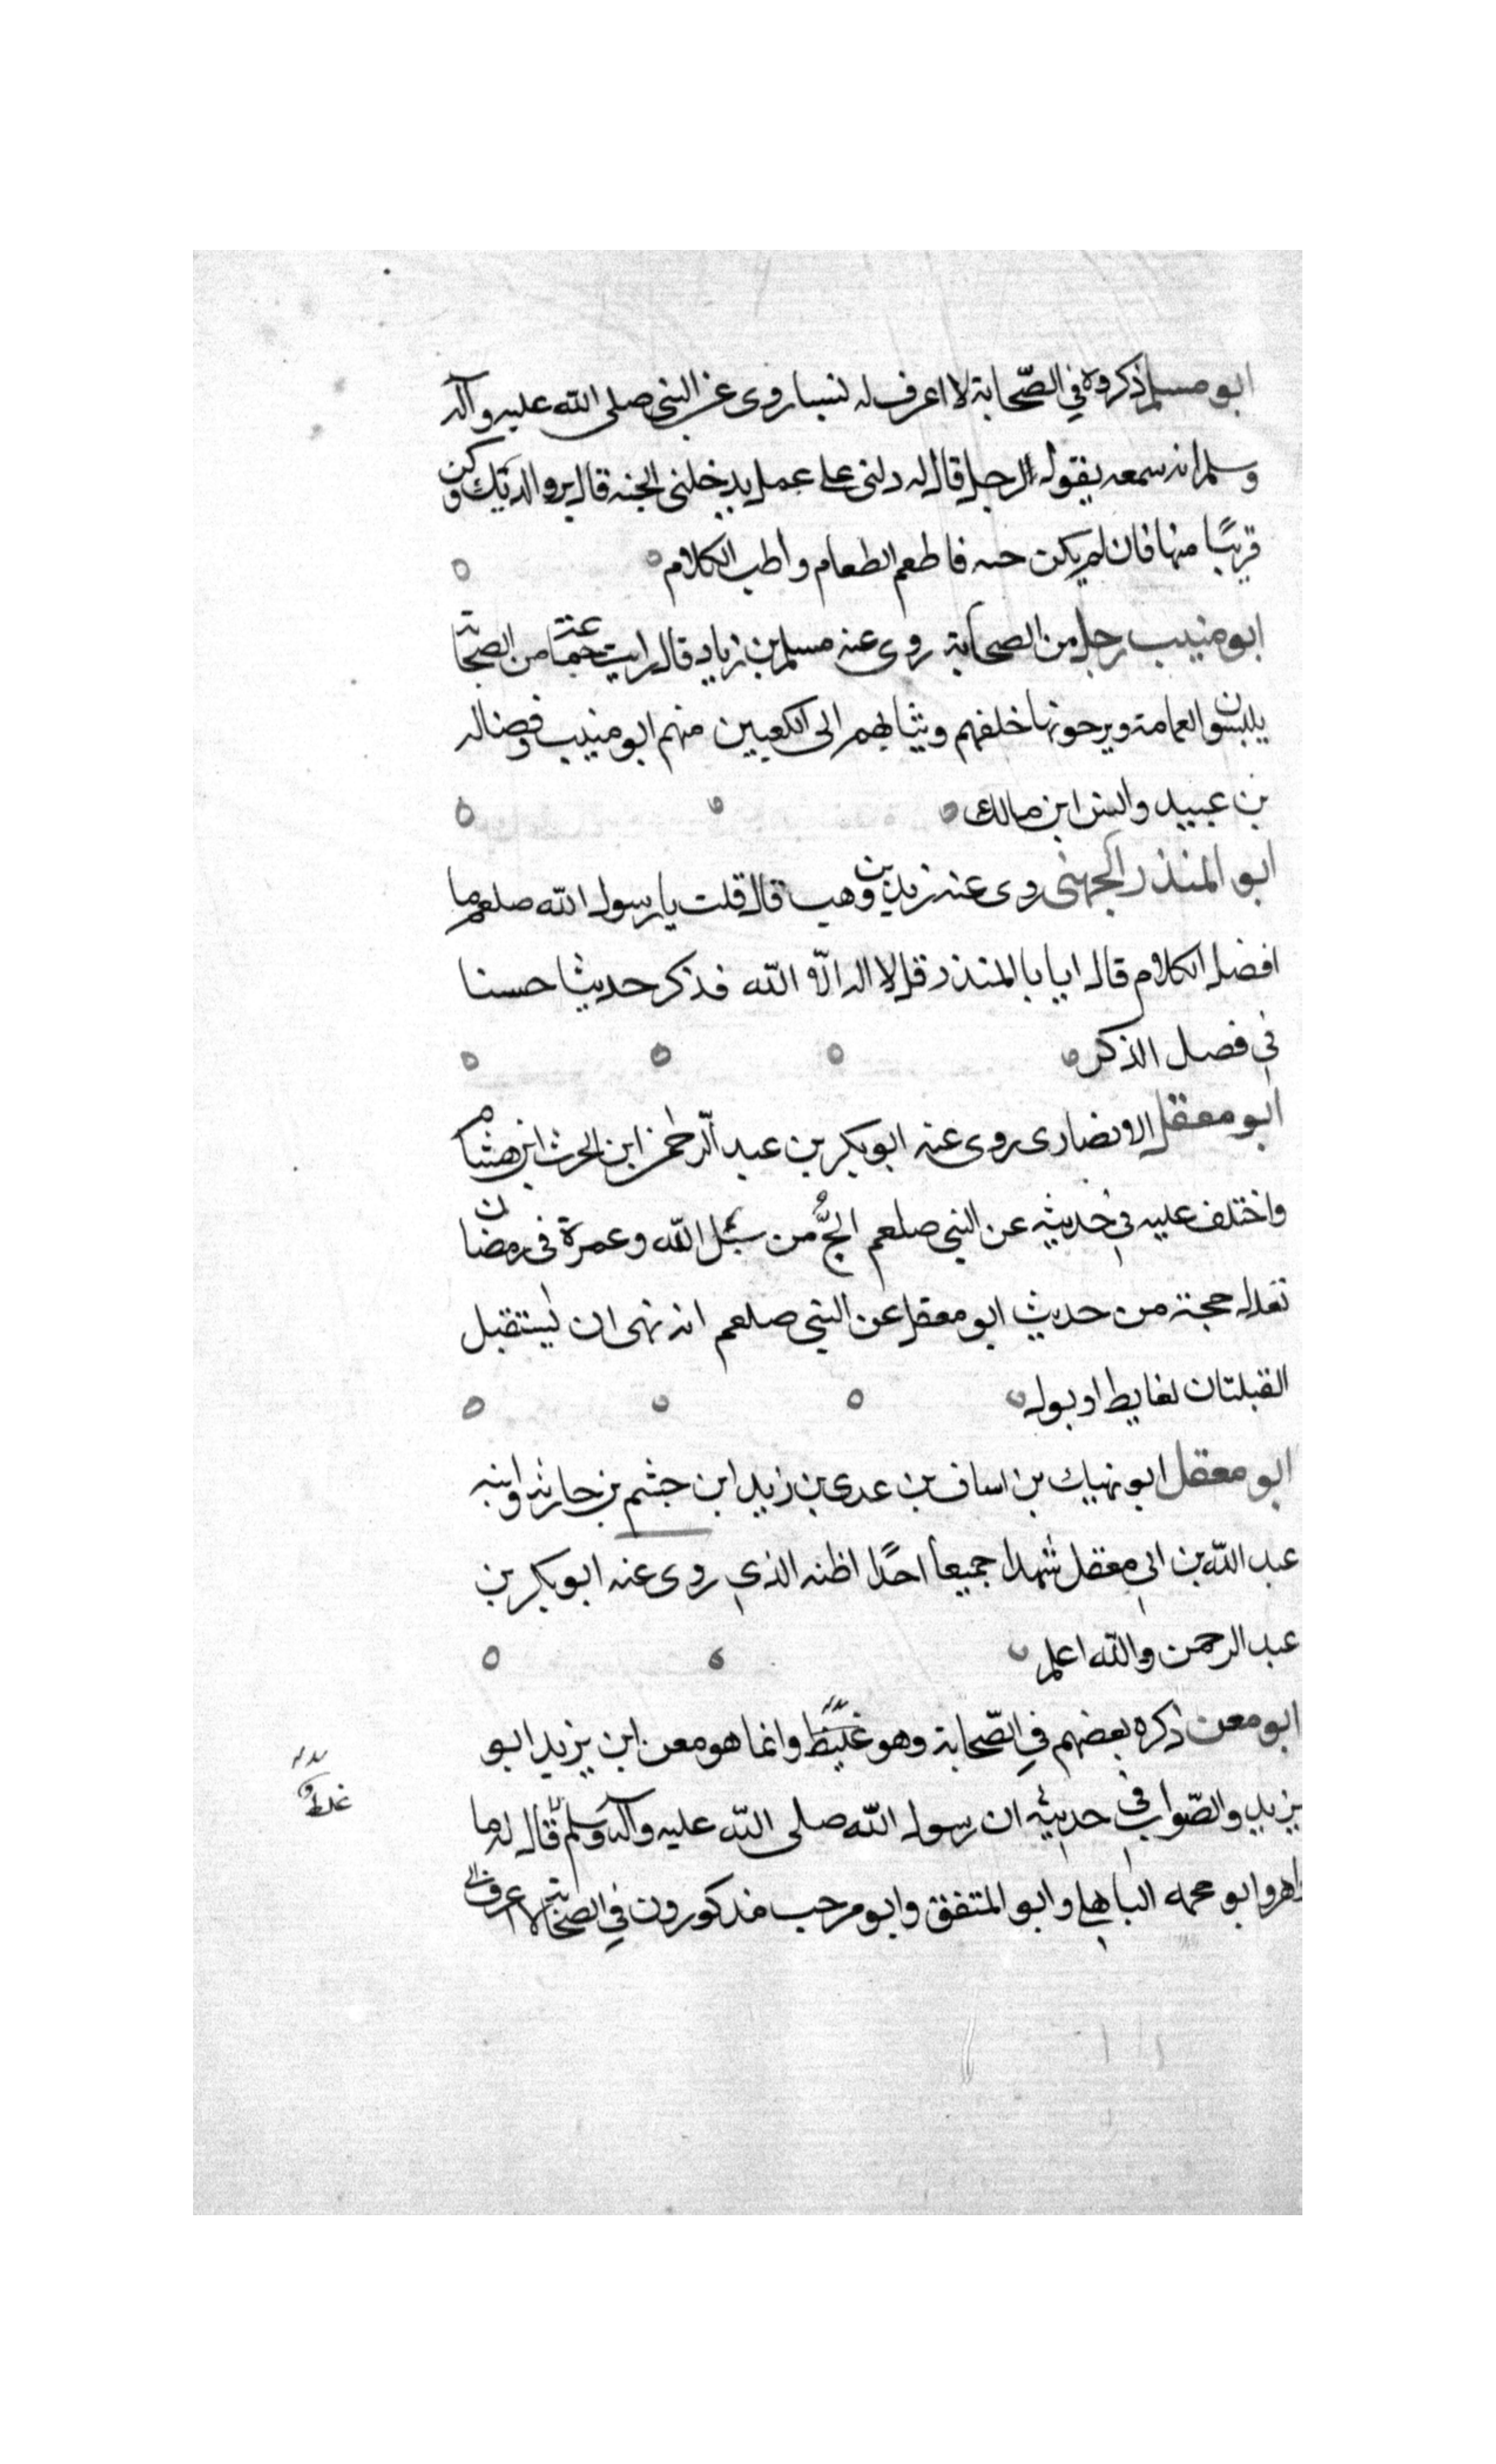 ابو مسلم ذكروه في الصّحابة لا اعرف له نسبا روى عن النبي صلى الله عليه وآله
وسلم انه سمعه يقول لرجل قال له دلنى على عمل يدخلنى الجنه قال بر والديك وكن
قريبًا منها فان لم يكن حيه فاطعم الطعام واطب الكلام
ابو منيب رجل من الصحابة روى عنه مسلم بن زياد قال رايت من الصحابة
يلبسون العمامة ويرخونها خلفهم وثيابهم الى الكعبين منهم ابو منيب وفضاله
بن عبيد وانس ابن مالك
ابو المنذر الجهنى روى عنه زيد بن وهب قال قلت يا رسول الله صلعم ما
افضل الكلام قال ايابا المنذر قل لا اله الّا الله فذكر حديثا حسنا
في فضل الذكر
ابو معقل الانصارى روى عنه ابو بكر بن عبد الرّحمن ابن الحرث ابن هشام
واختلف عليه في حديثه عن النبي صلعم الحجُّ من سبيل الله وعمرة فى رمضان
تعدل حجة من حديث ابو معقل عن النبي صلعم انه نهى ان يستقبل
القبلتان لغايط او بول
ابو معقل ابو نهيك بن اساف بن عدى بن زيد ابن جشم بن حارثه وابنه
عبد الله بن ابي معقل شهدا جميعا احدًا اظنه الذي روى عنه ابو بكر بن
عبد الرحمن والله اعلم
ابو معن ذكره بعضهم في الصّحابة وهو غليظ وانما هو معن ابن يزيد ابو
يزيد والصّواب في حديثه ان رسول الله صلى الله عليه وآله وسلم قال له ما
وابو الباهلي وابو المنتفق وابو مرحب مذكورون في الصحابة لا اعرف
غلط